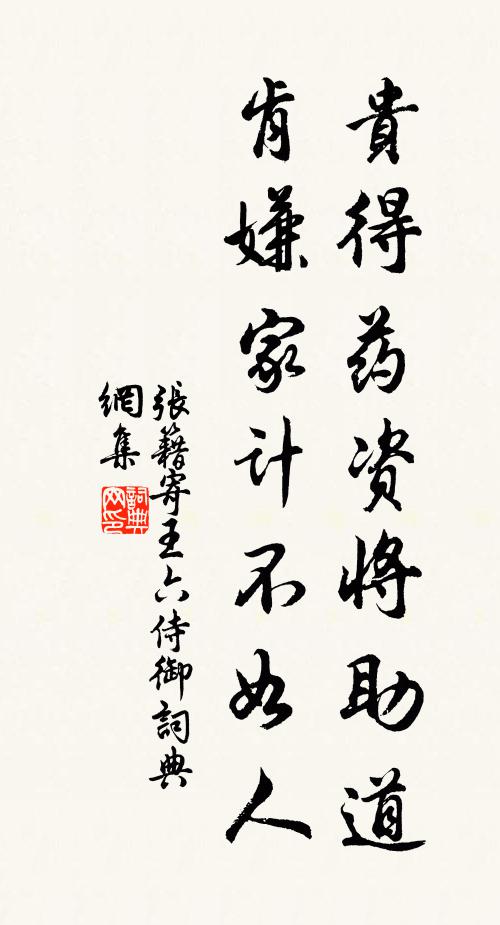 貴得药资将助道
肯嫌家计不如人
張籍寄王六侍御詞典
網集
詞典
网印